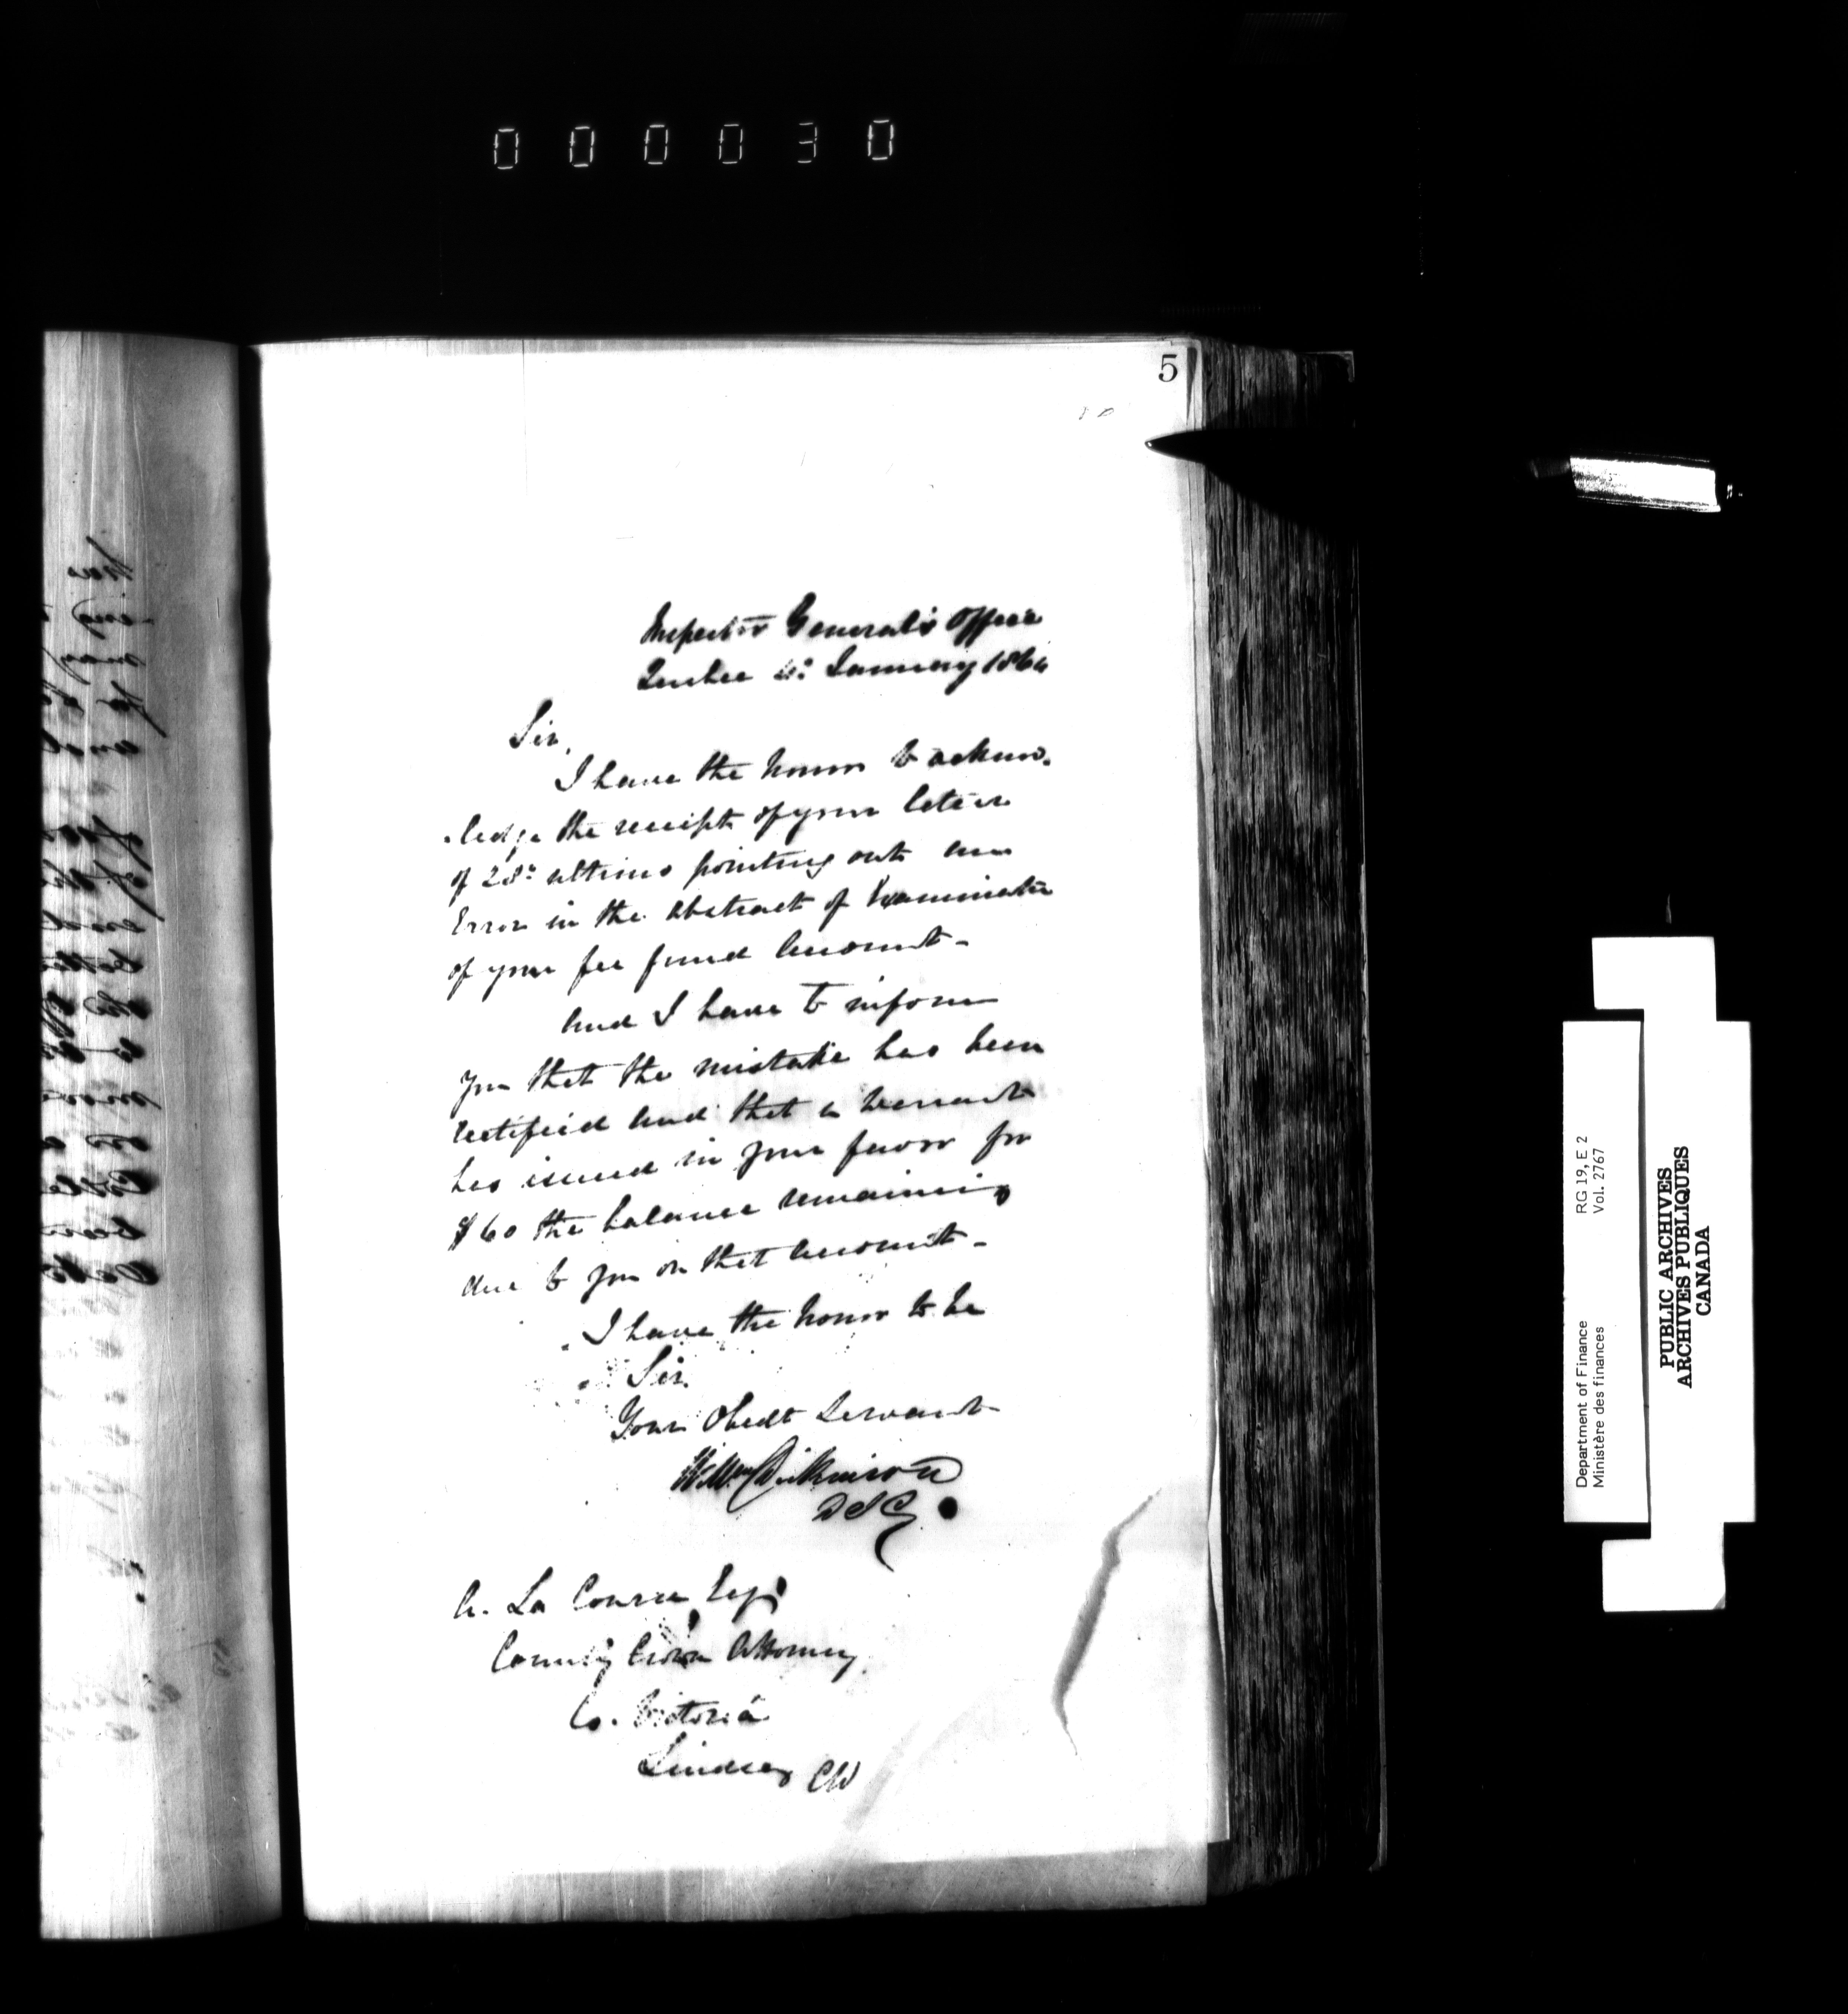 000030
5
Inspector General's Office
Quebec 4: January 1864
Sir,
I have the honor to acknow-
-ledge the receipt of your letter
of 28: ultimo pointing out an
Error in the Abstract of Examination
of your fee fund Account-
And I have to inform
you that the mistake has been
rectified and that a Warrant
has issued in your favor for
$60 the balance remaining
due to you on that Account-
I have the honor to be
Sir.
Your Obedt Servant
Wm Dickinson
A. La Course Esqr
County Crown Attorney
Co. Victoria
Lindsay CW
Department of Finance RG 19, E 2
Ministère des finances Vol. 2767
PUBLIC ARCHIVES
ARCHIVES PUBLIQUES
CANADA